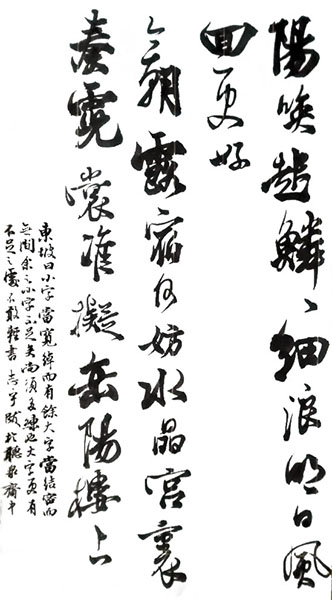 陽喚起鱗〻細浪明日風
回更好
今朝露宿何妨水晶宮裏
奏霓裳准擬岳陽樓上
東坡曰小字當寬綽而有餘大字當結密而
無間余之小字不足矣尚須多練也大字更有
不足之處不敢輕書 於聽泉齋中